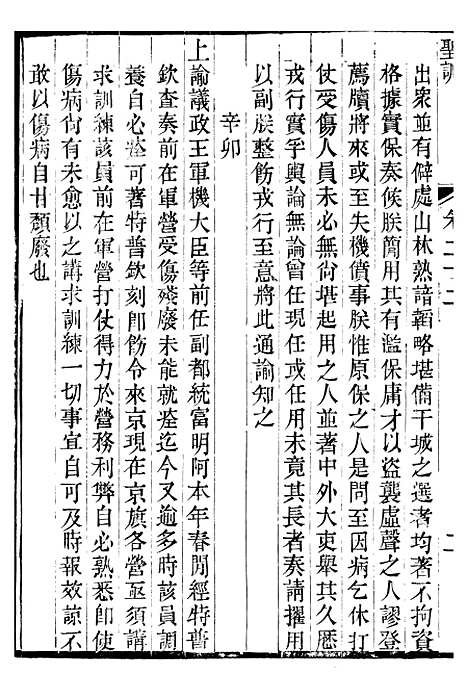 聖訓
卷二十二
二
出衆並有僻處山林熟諳韜略堪備干城之選者均著不拘資
格據實保奏候朕簡用其有濫保庸才以盜襲虛聲之人謬登
薦牘將來或至失機僨事朕惟原保之人是問至因病乞休打
仗受傷人員未必無尙堪起用之人並著中外大吏舉其久歷
戎行實乎輿論無論曾任現任或任用未竟其長者奏請擢用
以副朕整飭戎行至意將此通諭知之
辛卯
上諭議政王軍機大臣等前任副都統富明阿本年春閒經特普
欽查奏前在軍營受傷殘廢未能就痊迄今又逾多時該員調
養自必痊可著特普欽刻卽飭令來京現在京旗各營亟須講
求訓練該員前在軍營打仗得力於營務利弊自必熟悉卽使
傷病尙有未愈以之講求訓練一切事宜自可及時報效諒不
敢以傷病自甘頹廢也